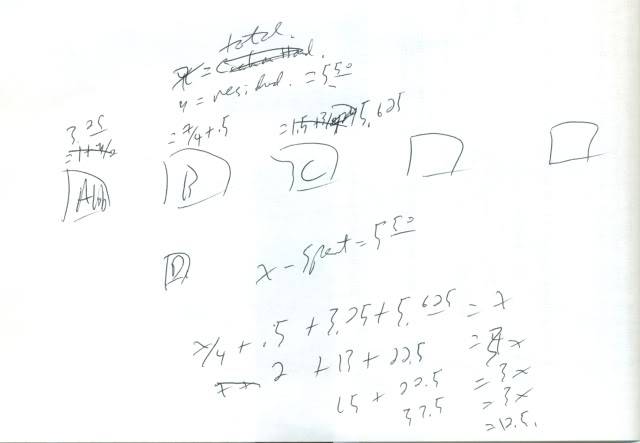 total.
x =
y = resid. = 5 50
3.25 = x/4 + .5 = 5.625
= 1 + y/2
B C
D x - spent = 5 50
x/4 + .5 + 3.25 + 5.625 = x
2 + 13 + 22.5 = 3x
15 + 22.5 = 3x
37.5 = 3x
= 12.5.